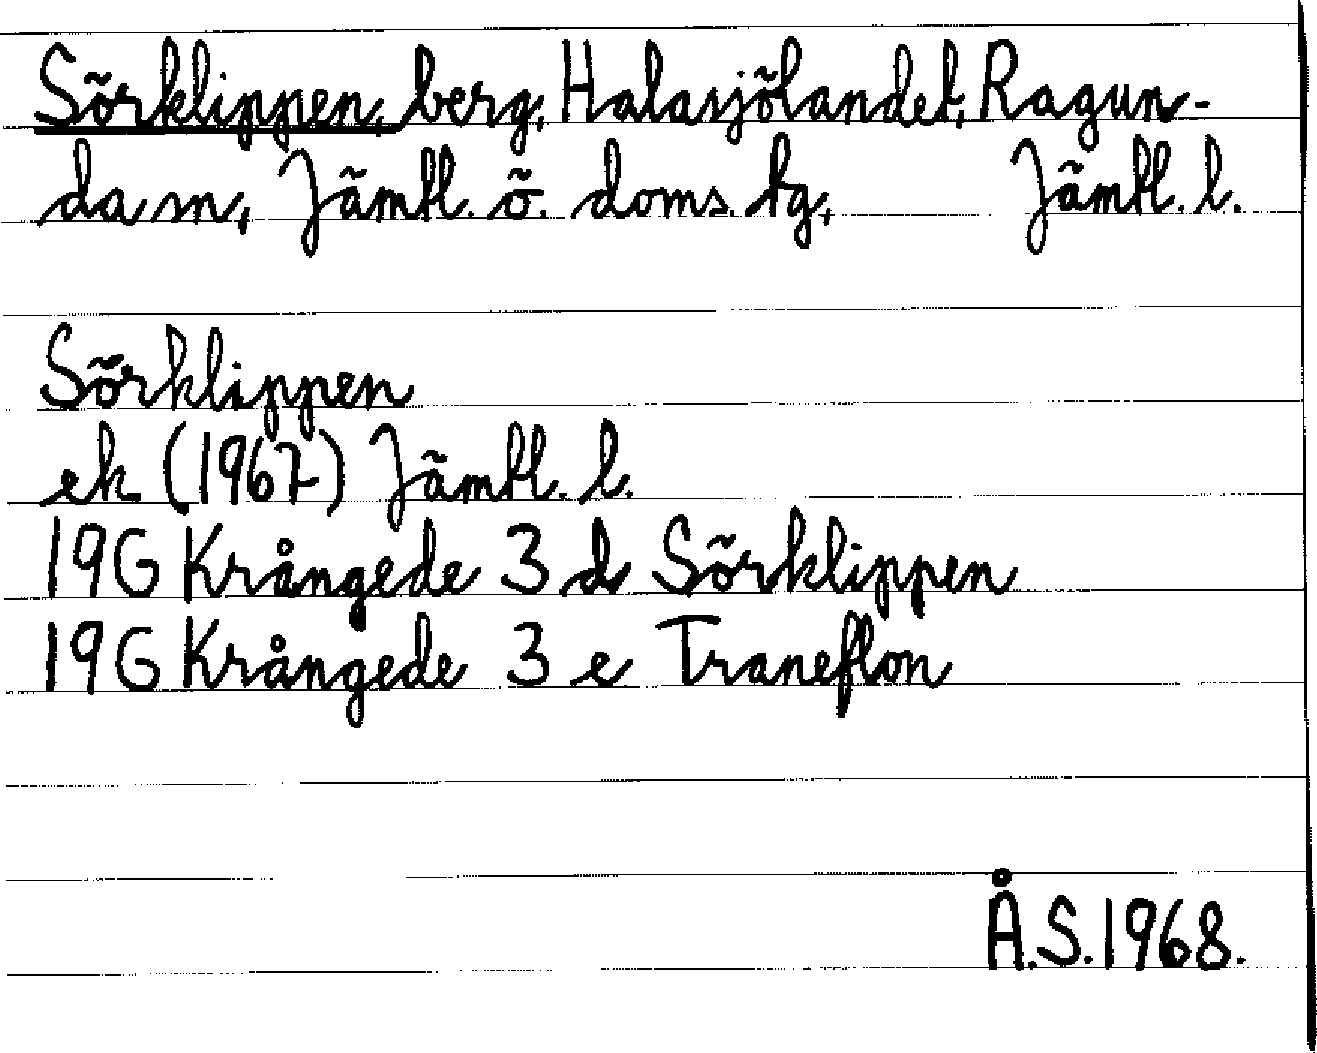 Sörklippen, berg, Halasjölandet, Ragun-
da sn, Jämtl. ö. doms. tg, Jämtl. l.
Sörklippen
ek (1967) Jämtl. l.
19G Krångede 3 d Sörklippen
19G Krångede 3 e Traneflon
Å.S. 1968.